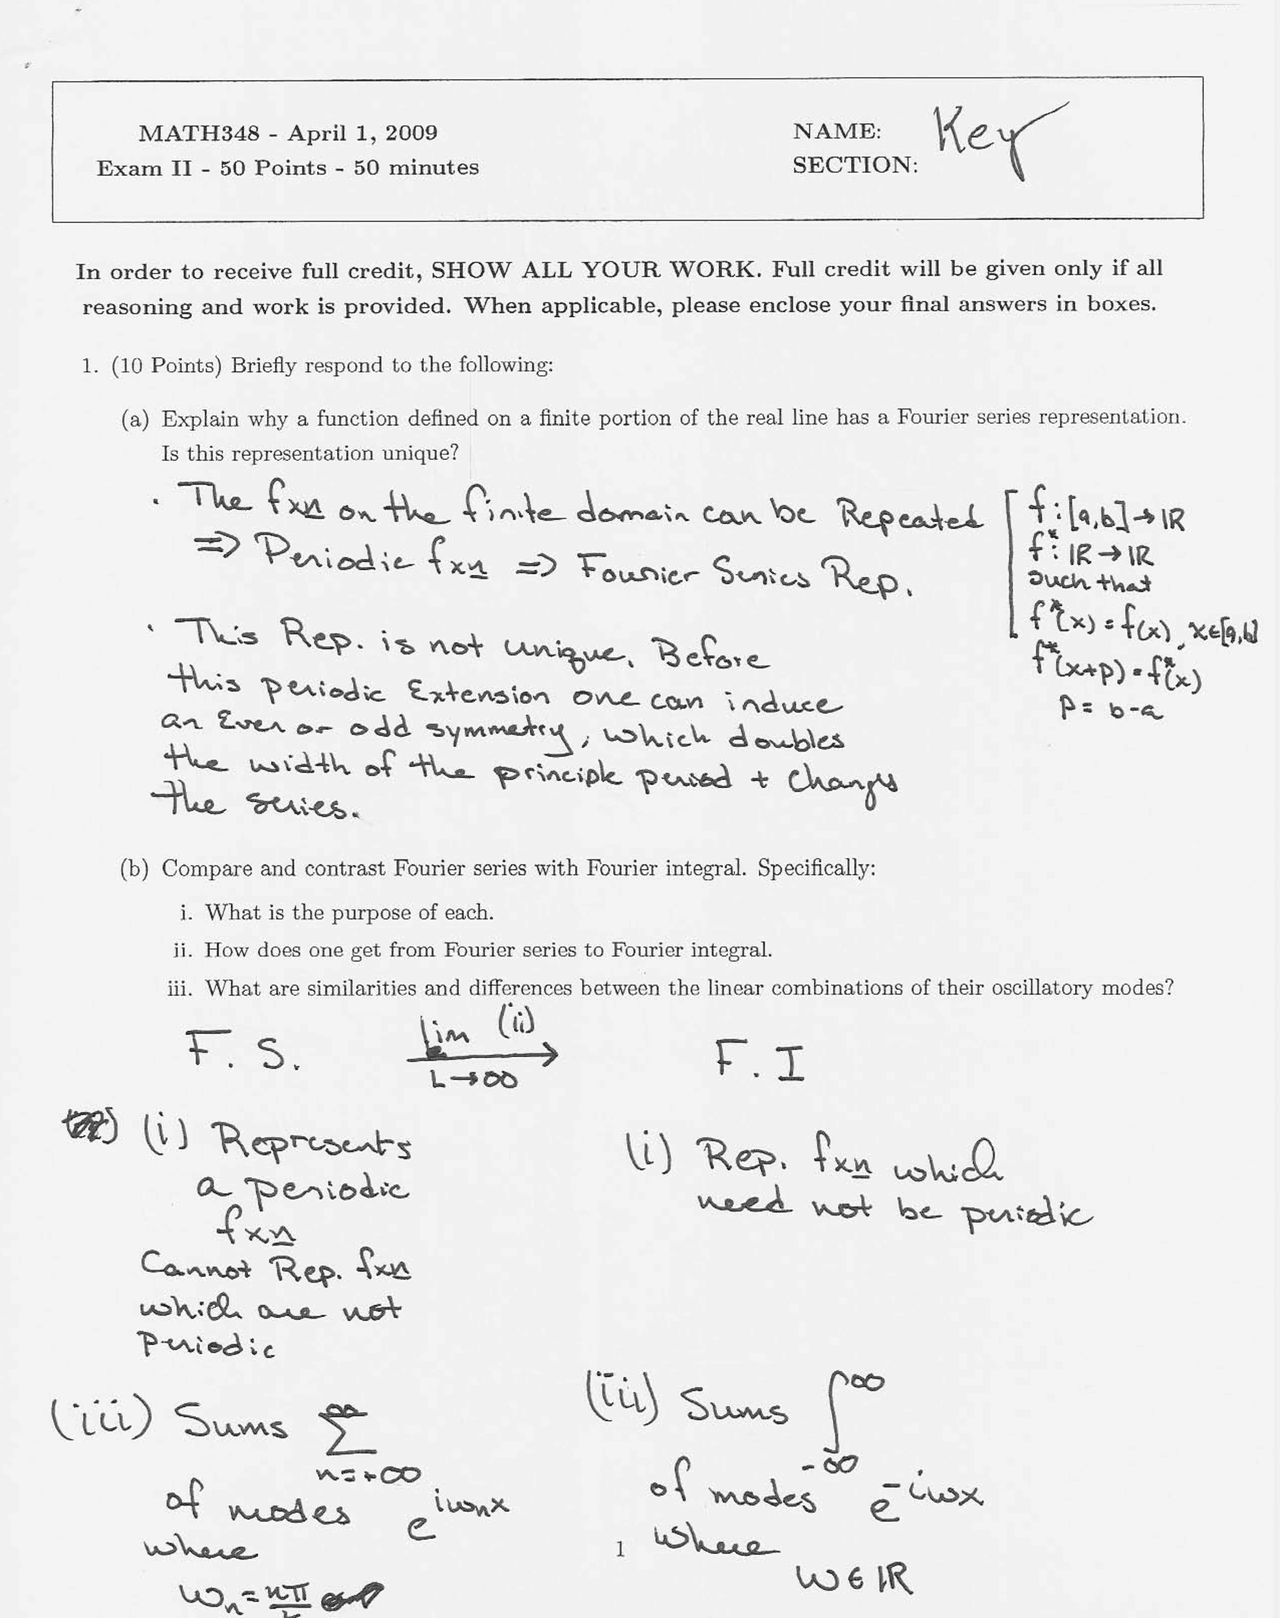 MATH348 - April 1, 2009
Exam II - 50 Points - 50 minutes
NAME: Key
SECTION:
In order to receive full credit, SHOW ALL YOUR WORK. Full credit will be given only if all
reasoning and work is provided. When applicable, please enclose your final answers in boxes.
1. (10 Points) Briefly respond to the following:
(a) Explain why a function defined on a finite portion of the real line has a Fourier series representation.
Is this representation unique?
· The fxn on the finite domain can be Repeated
⇒ Periodic fxn ⇒ Fourier Series Rep.
f:[a,b]→ℝ
f*:ℝ→ℝ
such that
f*(x)=f(x), x∈[a,b]
f*(x+p)=f*(x)
P= b-a
· This Rep. is not unique. Before
this periodic Extension one can induce
an Even or odd symmetry, which doubles
the width of the principle period + changes
the series.
(b) Compare and contrast Fourier series with Fourier integral. Specifically:
i. What is the purpose of each.
ii. How does one get from Fourier series to Fourier integral.
iii. What are similarities and differences between the linear combinations of their oscillatory modes?
F.S. lim L→∞ (ii) → F.I
(i) Represents
a periodic
fxn
Cannot Rep. fxn
which are not
Periodic
(i) Rep. fxn which
need not be periodic
(iii) Sums ∑ ∞ n=-∞
of modes e^{iωₙx}
where
ωₙ=nπ/L
(iii) Sums ∫ ∞ -∞
of modes e^{-iωx}
where
ω∈ℝ
1